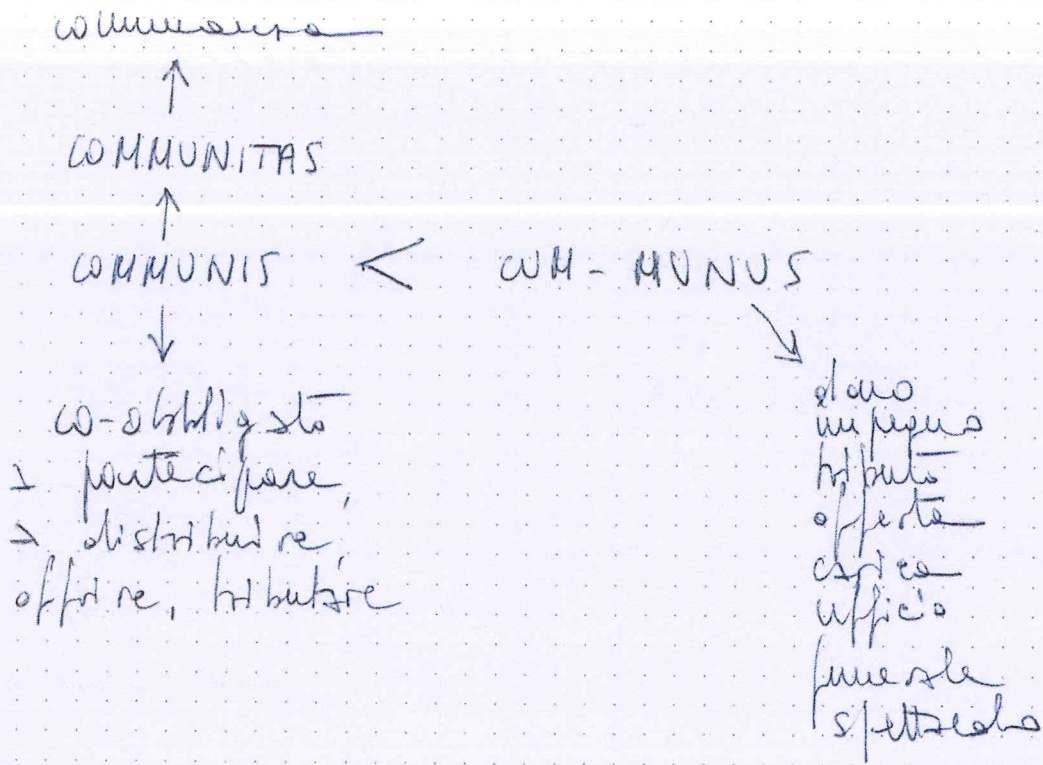 comunanza
↑
COMMUNITAS
↑
COMMUNIS < CUM - MUNUS
↓ ↘
co-obbligato
a partecipare,
a distribuire,
offrire, tributare
dono
impegno
tributo
offerta
carica
ufficio
funerale
spettacolo